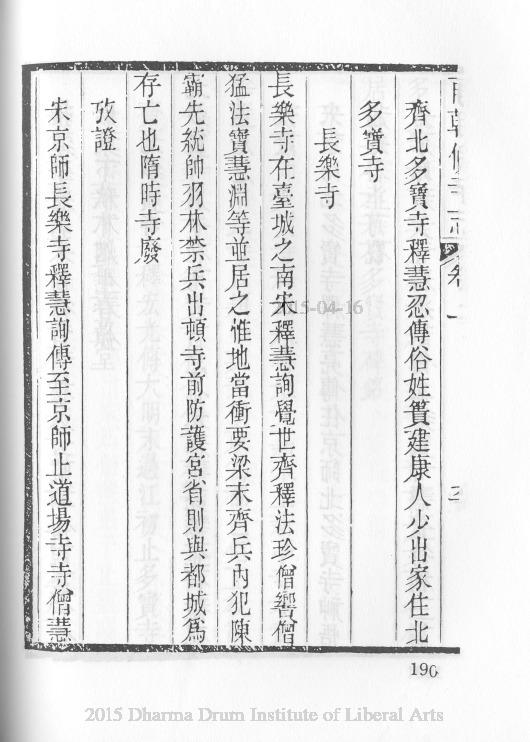 南朝佛寺志 卷上
齊北多寶寺釋慧忍傳俗姓蕢建康人少出家住北
多寶寺
長樂寺
長樂寺在臺城之南宋釋慧詢覺世齊釋法珍僧嚮僧
猛法寶慧淵等並居之惟地當衝要梁末齊兵內犯陳
霸先統帥羽林禁兵出頓寺前防護宮省則與都城爲
存亡也隋時寺廢
攷證
宋京師長樂寺釋慧詢傳至京師止道場寺寺僧慧
190
2015-04-16
2015 Dharma Drum Institute of Liberal Arts